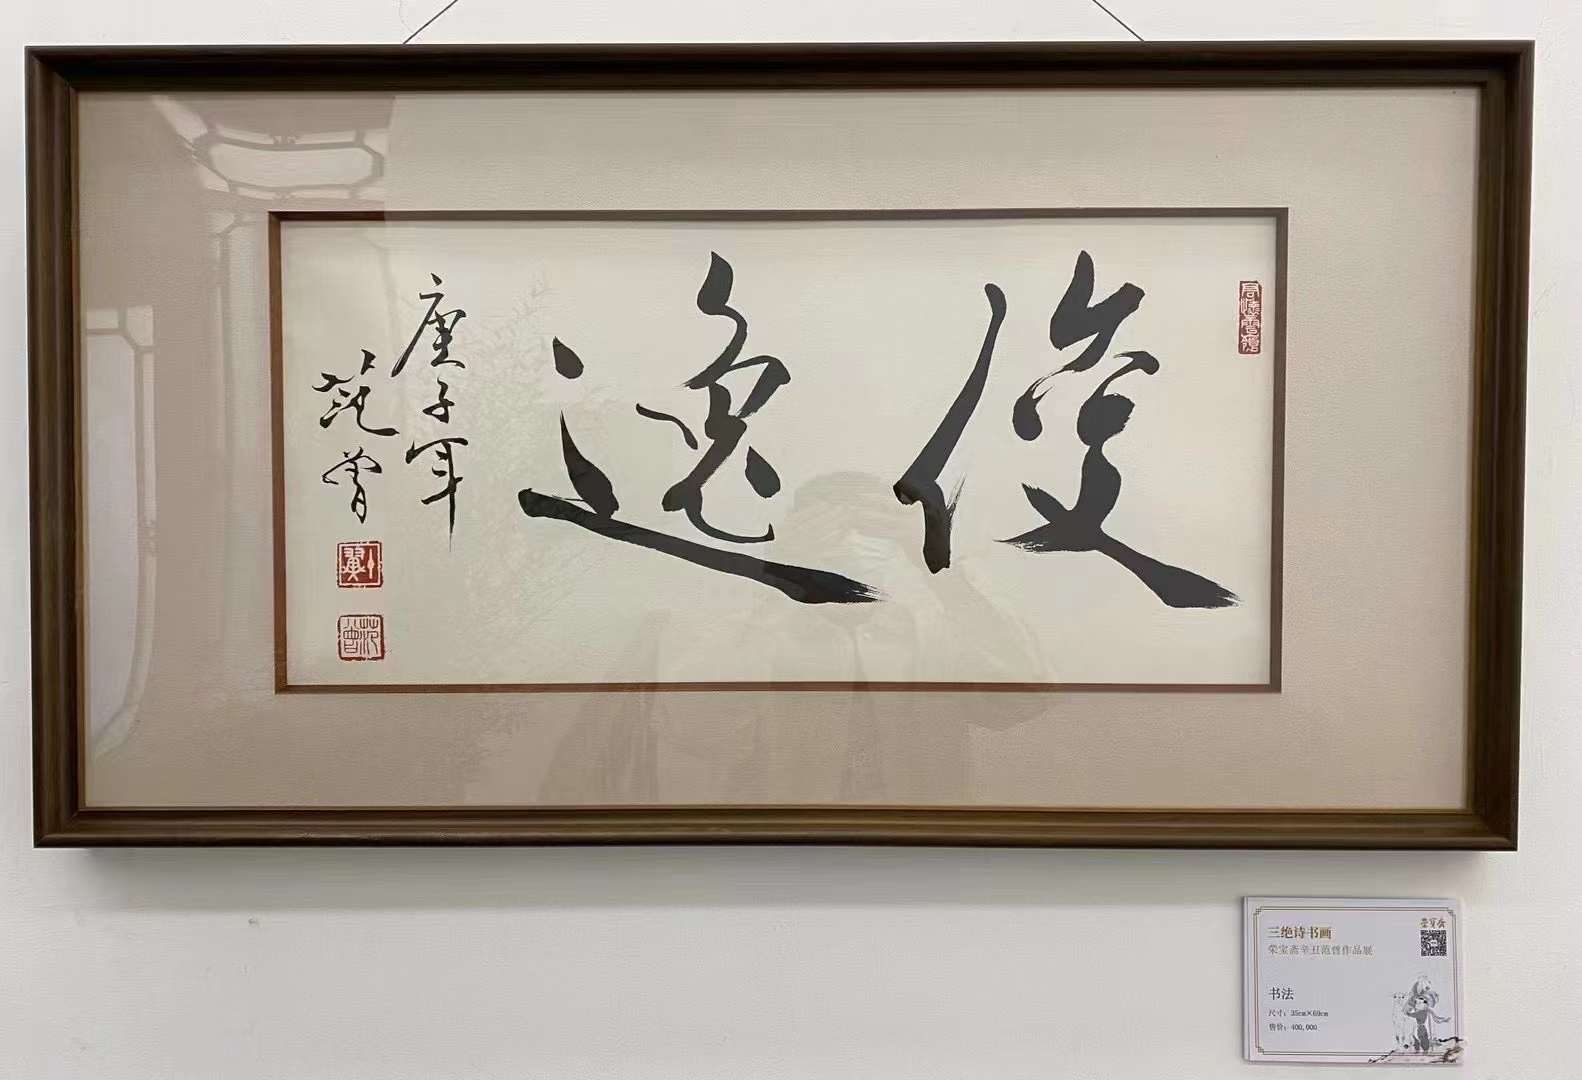 俊逸
庚子年
范曾
范曾
荣宝斋
三绝诗书画
荣宝斋辛丑范曾作品展
书法
尺寸：35cm×69cm
售价：400,000